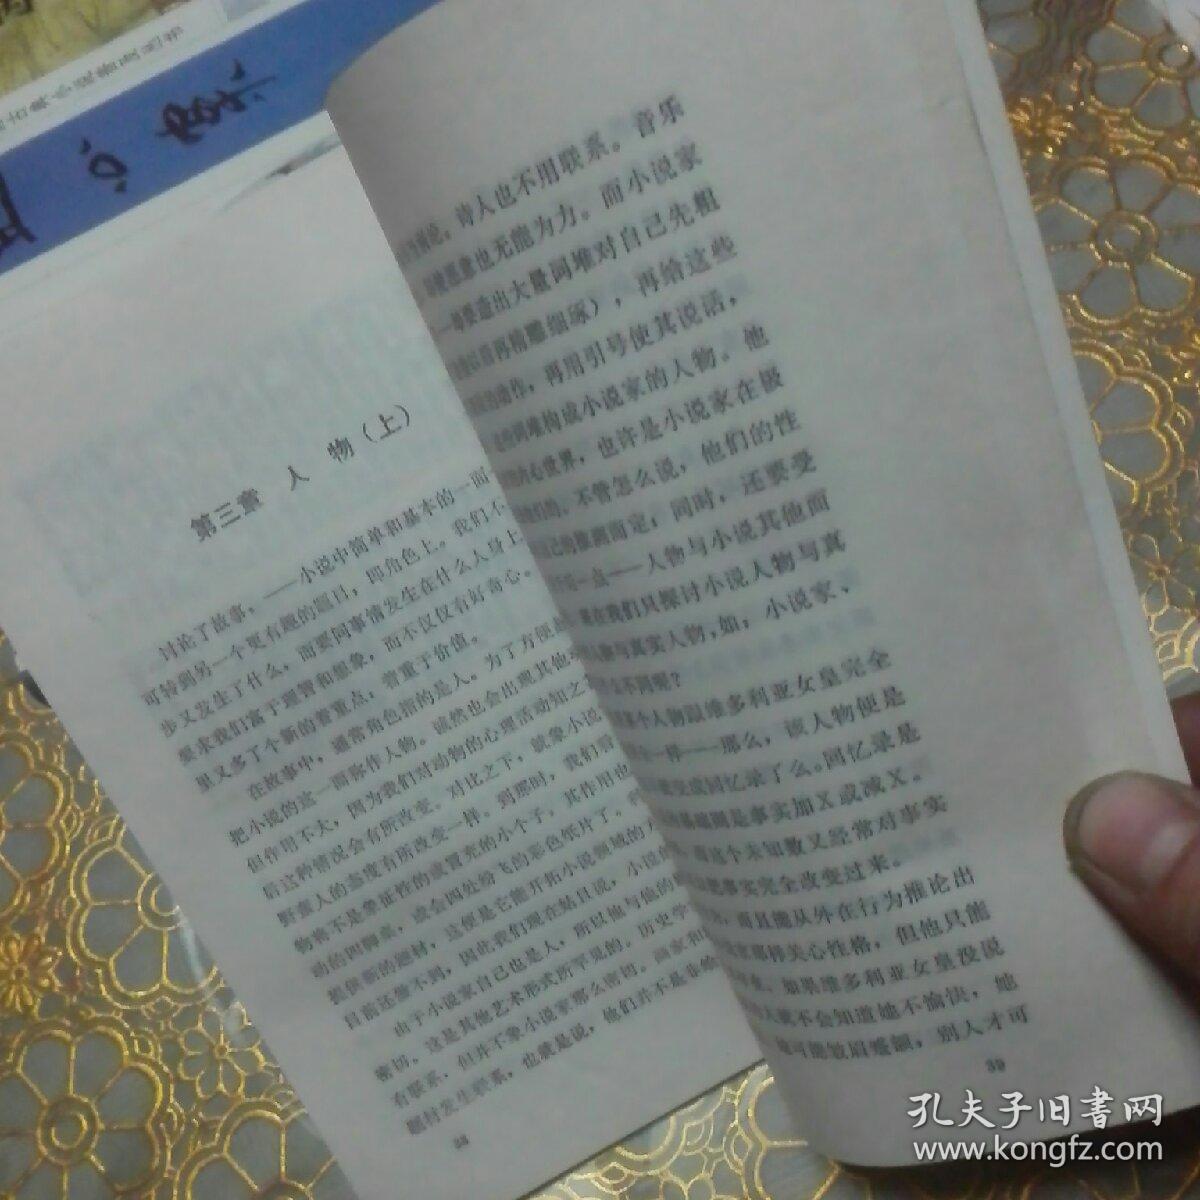 第三章 人 物（上）
讨论了故事，——小说中简单和基本的一面
可转到另一个更有趣的题目，即角色上。我们不
步又发生了什么，而要问事情发生在什么人身上
要求我们富于理智和想象，而不仅仅有好奇心。
里又多了个新的着重点：着重于价值。
在故事中，通常角色指的是人。为了方便
把小说的这一面称作人物。虽然也会出现其他
但作用不大，因为我们对动物的心理活动知之
后这种情况会有所改变。对比之下，就象小说
野蛮人的态度有所改变一样。到那时，我们
物将不是象征性的或冒充的小个子，其作用也
动的四脚桌，或会四处纷飞的彩色纸片了。
提供新的题材，这便是它能开拓小说领域的
目前还做不到，因此我们现在姑且说，小说
由于小说家自己也是人，所以他与他的
密切。这是其他艺术形式所罕见的。历史学
有联系，但并不象小说家那么密切。画家和
题材发生联系，也就是说，他们并不是非
38
诗人也不用联系。音乐
也无能为力。而小说家
造出大量词堆对自己先粗
再精雕细琢），再给这些
动作，再用引号使其说话，
词堆构成小说家的人物。他
内心世界，也许是小说家在极
不管怎么说，他们的性
的推测而定；同时，还要受
一点——人物与小说其他面
在我们只探讨小说人物与真
人物与真实人物，如：小说家、
不同呢？
个人物跟维多利亚女皇完全
一样——那么，该人物便是
变成回忆录了么。回忆录是
则是事实加X或减X。
这个未知数又经常对事实
把事实完全改变过来。
而且能从外在行为推论出
家那样关心性格，但他只能
如果维多利亚女皇没说
就不会知道她不愉快，她
可能皱眉蹙额，别人才可
39
孔夫子旧书网
www.kongfz.com